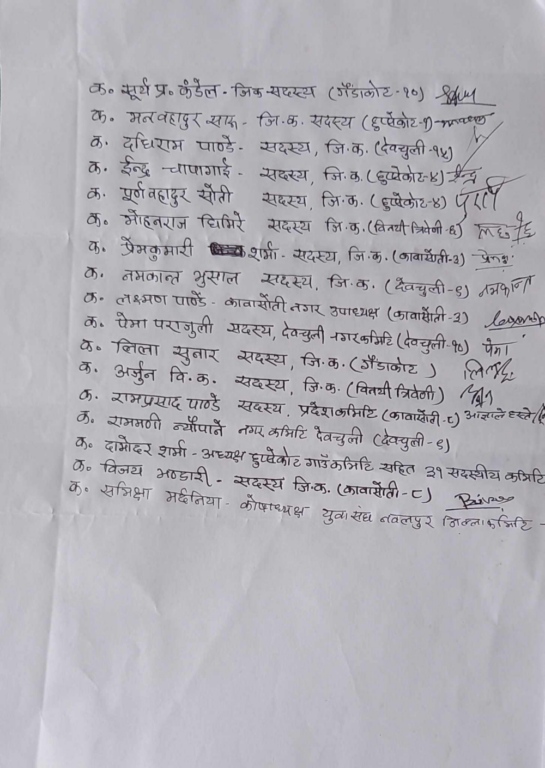 क. सूर्य प्र. कंडेल - जिक सदस्य (गैंडाकोट -१०)
क. मनवहादुर सारू - जि.क. सदस्य (हुप्सेकोट-१)
क. दधिराम पाण्डे - सदस्य, जि.क. (देवचुली -१४)
क. ईन्द्र चापागाई - सदस्य, जि.क. (हुप्सेकोट-४) ईन्द्र
क. पूर्णवहादुर सोती सदस्य जि.क. (हुप्सेकोट-४) पूर्ण
क. मोहनराज घिमिरे सदस्य जि.क. (विनयी त्रिवेनी-६)
क. प्रेमकुमारी शर्मा - सदस्य, जि.क. (कावासोती-३)
क. नमकान्त भुसाल सदस्य, जि.क. (देवचुली-६)
क. लक्ष्मण पाण्डे - कावासोती नगर उपाध्यक्ष (कावासोती-३)
क. पेमा परागुली सदस्य, देवचुली नगरकमिटि (देवचुली-१०) पेमा
क. लिला सुनार सदस्य, जि.क. (गैंडाकोट )
क. अर्जुन वि.क. सदस्य, जि.क. (विनयी त्रिवेनी)
क. रामप्रसाद पाण्डे सदस्य, प्रदेशकमिटि (कावासोती-८)
क. राममणी न्यौपाने नगर कमिटि देवचुली (देवचुली-६)
क. दामोदर शर्मा - अध्यक्ष हुप्सेकोट गाउँकमिटि सहित ३१ सदस्यीय कमिटि
क. विजय भण्डारी - सदस्य जि.क. (कावासोती-८)
क. समिक्षा मर्दनिया - कोषाध्यक्ष युवा संघ नवलपुर जिल्लाकमिटि -